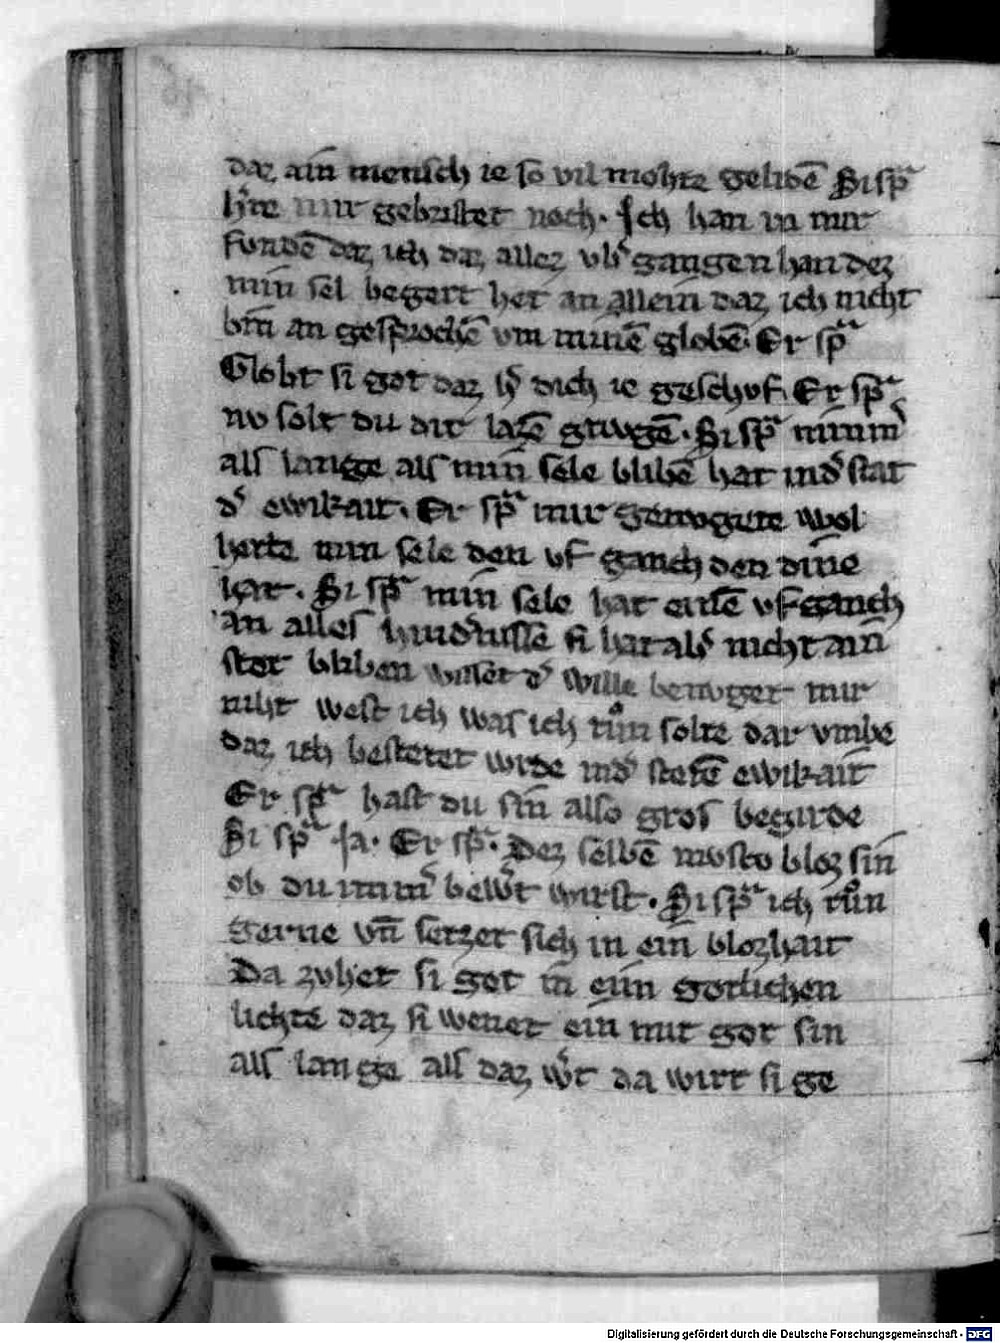 daz ain mensch ie so vil mohte gelidē Si spͣ
hˀre mir gebristet noch. Ich han in mir
fundē daz ich daz allez vbˀ gangen han dez
min sel begert het an allein daz ich nicht
bin an gesprochē vm minē globē. Er spͣ
Globt si got daz hˀ dich ie geschof. Er spͣ
nv solt du dir lazē gnvgē. Si spͣ nimmˀ
als lange als min sele blibē hat indˀ stat
dˀ ewikait. Er spͣ mir genvgete wol
hette min sele den vf ganch den dine
hat. Si spͣ min sele hat einē vf ganch
an alles hindˀnussē si hat alsˀ nicht ain
stet bliben wissēt dˀ wille benvget mir
niht west ich was ich tuͦn solte dar vmbe
daz ich bestetet wrde indˀ stetē ewikait
Er spͣ hast du sin also gros begirde
Si spͣ Ja. Er spͣ. Dez selbē mvsto bloz sin
ob du immˀ bewˀt wirst. Si spͣ ich tuͦn
gerne vn̄ setzet sich in ein blozhait
Da zvhet si got in eiin gotlichen
lichte daz si wenet ein mit got sin
als lange als daz wˀt da wirt si ge
Digitalisierung gefördert durch die Deutsche Forschungsgemeinschaft - DFG